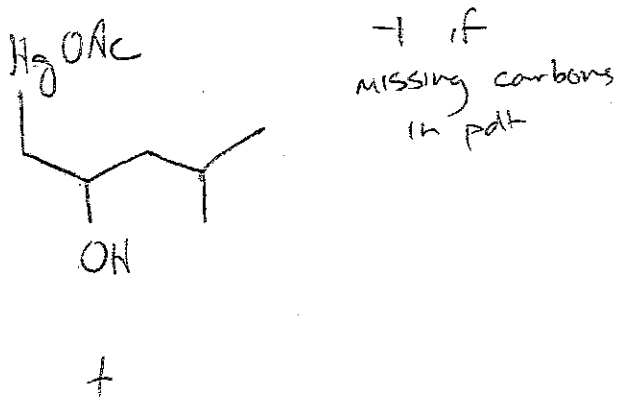 Hg OAc
-1 if
missing carbons
in pdt
OH
+